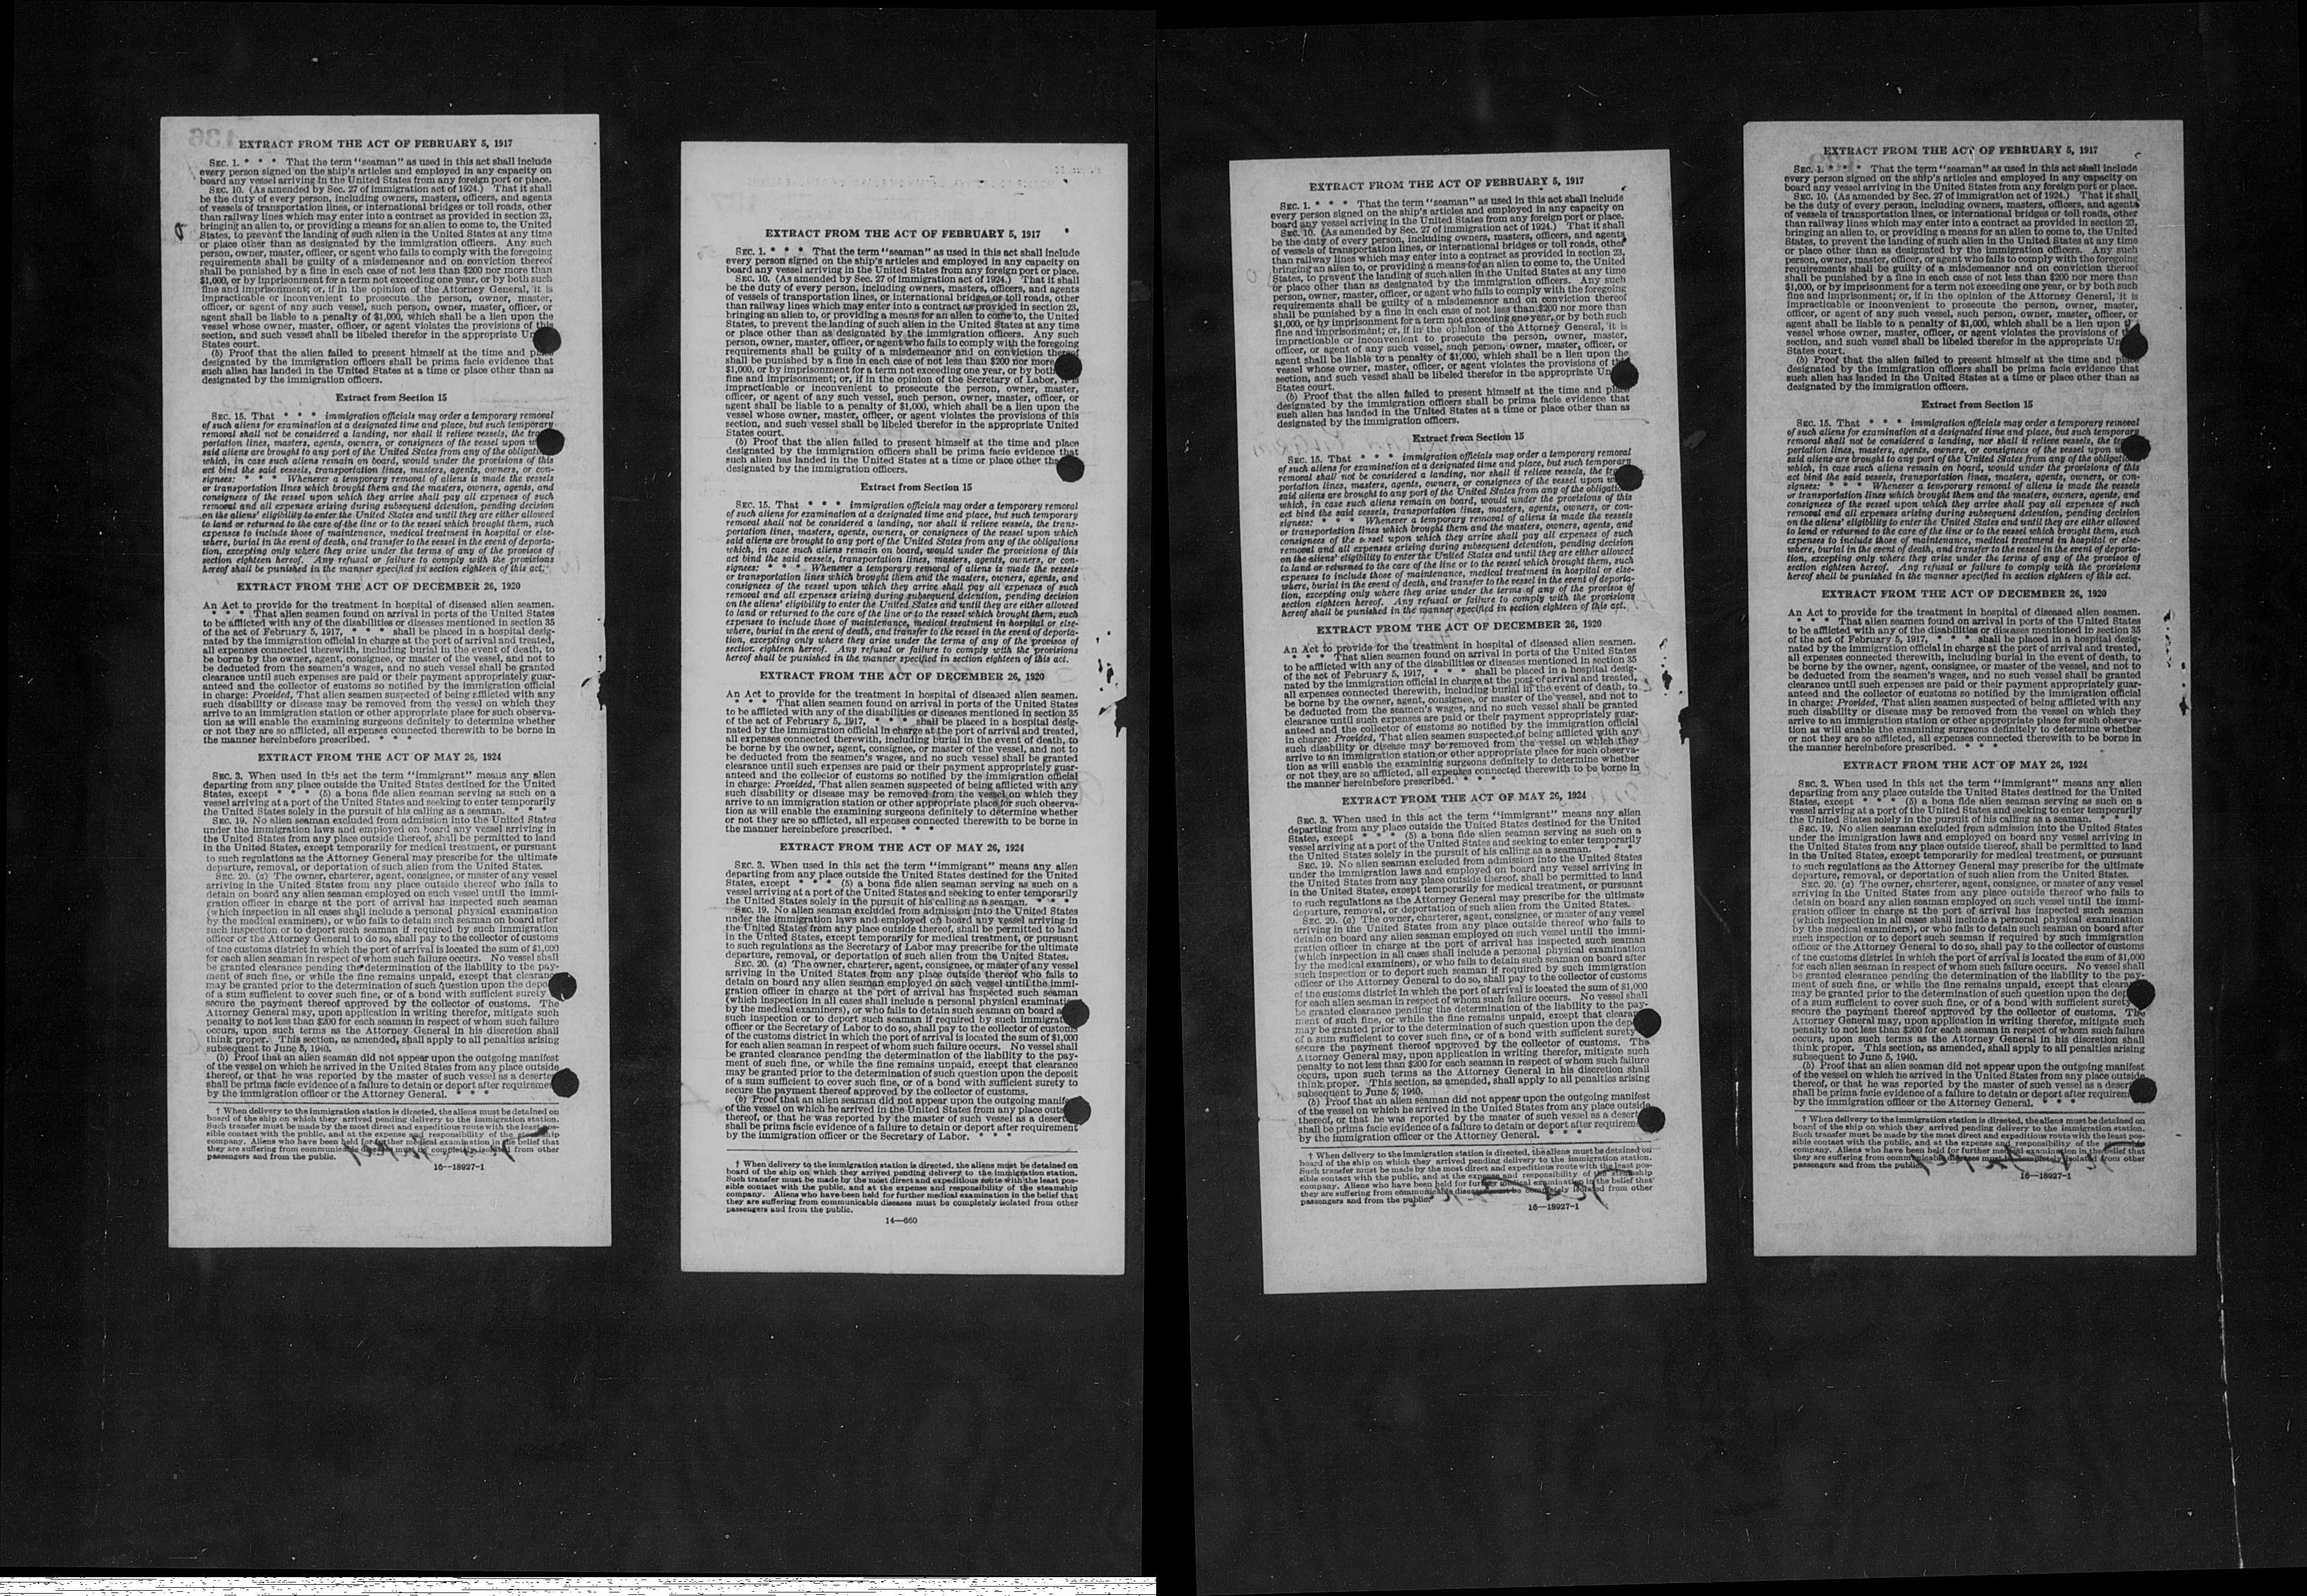 EXTRACT FROM THE ACT OF FEBRUARY 5, 1917
SEC. 1. * * * That the term "seaman" as used in this act shall include
every person signed on the ship's articles and employed in any capacity on
board any vessel arriving in the United States from any foreign port or place.
SEC. 10. (As amended by Sec. 27 of immigration act of 1924.) That it shall
be the duty of every person, including owners, masters, officers, and agents
of vessels of transportation lines, or international bridges or toll roads, other
than railway lines which may enter into a contract as provided in section 23,
bringing an alien to, or providing a means for an alien to come to, the United
States, to prevent the landing of such alien in the United States at any time
or place other than as designated by the immigration officers. Any such
person, owner, master, officer, or agent who fails to comply with the foregoing
requirements shall be guilty of a misdemeanor and on conviction thereof
shall be punished by a fine in each case of not less than $200 nor more than
$1,000, or by imprisonment for a term not exceeding one year, or by both such
fine and imprisonment; or, if in the opinion of the Attorney General, it is
impracticable or inconvenient to prosecute the person, owner, master,
officer, or agent of any such vessel, such person, owner, master, officer, or
agent shall be liable to a penalty of $1,000, which shall be a lien upon the
vessel whose owner, master, officer, or agent violates the provisions of this
section, and such vessel shall be libeled therefor in the appropriate
States court.
(b) Proof that the alien failed to present himself at the time and place
designated by the immigration officers shall be prima facie evidence that
such alien has landed in the United States at a time or place other than as
designated by the immigration officers.
Extract from Section 15
SEC. 15. That * * * immigration officials may order a temporary removal
of such aliens for examination at a designated time and place, but such temporary
removal shall not be considered a landing, nor shall it relieve vessels, the
portation lines, masters, agents, owners, or consignees of the vessel upon
said aliens are brought to any port of the United States from any of the
which, in case such aliens remain on board, would under the provisions of this
act bind the said vessels, transportation lines, masters, agents, owners, or con-
signees: * * * Whenever a temporary removal of aliens is made the vessels
or transportation lines which brought them and the masters, owners, agents, and
consignees of the vessel upon which they arrive shall pay all expenses of such
removal and all expenses arising during subsequent detention, pending decision
on the aliens' eligibility to enter the United States and until they are either allowed
to land or returned to the care of the line or to the vessel which brought them, such
expenses to include those of maintenance, medical treatment in hospital or else-
where, burial in the event of death, and transfer to the vessel in the event of deporta-
tion, excepting only where they arise under the terms of any of the provisos of
section eighteen hereof. Any refusal or failure to comply with the provisions
hereof shall be punished in the manner specified in section eighteen of this act.
EXTRACT FROM THE ACT OF DECEMBER 26, 1920
An Act to provide for the treatment in hospital of diseased alien seamen.
* * * That alien seamen found on arrival in ports of the United States
to be afflicted with any of the disabilities or diseases mentioned in section 35
of the act of February 5, 1917, * * * shall be placed in a hospital desig-
nated by the immigration official in charge at the port of arrival and treated,
all expenses connected therewith, including burial in the event of death, to
be borne by the owner, agent, consignee, or master of the vessel, and not to
be deducted from the seamen's wages, and no such vessel shall be granted
clearance until such expenses are paid or their payment appropriately guar-
anteed and the collector of customs so notified by the immigration official
in charge: Provided, That alien seamen suspected of being afflicted with any
such disability or disease may be removed from the vessel on which they
arrive to an immigration station or other appropriate place for such observa-
tion as will enable the examining surgeons definitely to determine whether
or not they are so afflicted, all expenses connected therewith to be borne in
the manner hereinbefore prescribed. * * *
EXTRACT FROM THE ACT OF MAY 26, 1924
SEC. 3. When used in this act the term "immigrant" means any alien
departing from any place outside the United States destined for the United
States, except * * * (5) a bona fide alien seaman serving as such on a
vessel arriving at a port of the United States and seeking to enter temporarily
the United States solely in the pursuit of his calling as a seaman. * * *
SEC. 19. No alien seaman excluded from admission into the United States
under the immigration laws and employed on board any vessel arriving in
the United States from any place outside thereof, shall be permitted to land
in the United States, except temporarily for medical treatment, or pursuant
to such regulations as the Attorney General may prescribe for the ultimate
departure, removal, or deportation of such alien from the United States.
SEC. 20. (a) The owner, charterer, agent, consignee, or master of any vessel
arriving in the United States from any place outside thereof who fails to
detain on board any alien seaman employed on such vessel until the immi-
gration officer in charge at the port of arrival has inspected such seaman
(which inspection in all cases shall include a personal physical examination
by the medical examiners), or who fails to detain such seaman on board after
such inspection or to deport such seaman if required by such immigration
officer or the Attorney General to do so, shall pay to the collector of customs
of the customs district in which the port of arrival is located the sum of $1,000
for each alien seaman in respect of whom such failure occurs. No vessel shall
be granted clearance pending the determination of the liability to the pay-
ment of such fine, or while the fine remains unpaid, except that
may be granted prior to the determination of such question upon the
of a sum sufficient to cover such fine, or of a bond with sufficient surety
secure the payment thereof approved by the collector of customs. The
Attorney General may, upon application in writing therefor, mitigate such
penalty to not less than $200 for each seaman in respect of whom such failure
occurs, upon such terms as the Attorney General in his discretion shall
think proper. This section, as amended, shall apply to all penalties arising
subsequent to June 5, 1940.
(b) Proof that an alien seaman did not appear upon the outgoing manifest
of the vessel on which he arrived in the United States from any place outside
thereof, or that he was reported by the master of such vessel as a
shall be prima facie evidence of a failure to detain or deport after
by the immigration officer or the Attorney General. * * *
† When delivery to the immigration station is directed, the aliens must be detained on
board of the ship on which they arrived pending delivery to the immigration station.
Such transfer must be made by the most direct and expeditious route with the least pos-
sible contact with the public, and at the expense and responsibility of the steamship
company. Aliens who have been held for further medical examination in the belief that
they are suffering from communicable diseases must be completely isolated from other
passengers and from the public.
16—18927-1
EXTRACT FROM THE ACT OF FEBRUARY 5, 1917
SEC. 1. * * * That the term "seaman" as used in this act shall include
every person signed on the ship's articles and employed in any capacity on
board any vessel arriving in the United States from any foreign port or place.
SEC. 10. (As amended by Sec. 27 of immigration act of 1924.) That it shall
be the duty of every person, including owners, masters, officers, and agents
of vessels of transportation lines, or international bridges or toll roads, other
than railway lines which may enter into a contract as provided in section 23,
bringing an alien to, or providing a means for an alien to come to, the United
States, to prevent the landing of such alien in the United States at any time
or place other than as designated by the immigration officers. Any such
person, owner, master, officer, or agent who fails to comply with the foregoing
requirements shall be guilty of a misdemeanor and on conviction thereof
shall be punished by a fine in each case of not less than $200 nor more
$1,000, or by imprisonment for a term not exceeding one year, or by both
fine and imprisonment; or, if in the opinion of the Secretary of Labor, it is
impracticable or inconvenient to prosecute the person, owner, master,
officer, or agent of any such vessel, such person, owner, master, officer, or
agent shall be liable to a penalty of $1,000, which shall be a lien upon the
vessel whose owner, master, officer, or agent violates the provisions of this
section, and such vessel shall be libeled therefor in the appropriate United
States court.
(b) Proof that the alien failed to present himself at the time and place
designated by the immigration officers shall be prima facie evidence that
such alien has landed in the United States at a time or place other
designated by the immigration officers.
Extract from Section 15
SEC. 15. That * * * immigration officials may order a temporary removal
of such aliens for examination at a designated time and place, but such temporary
removal shall not be considered a landing, nor shall it relieve vessels, the trans-
portation lines, masters, agents, owners, or consignees of the vessel upon which
said aliens are brought to any port of the United States from any of the obligations
which, in case such aliens remain on board, would under the provisions of this
act bind the said vessels, transportation lines, masters, agents, owners, or con-
signees: * * * Whenever a temporary removal of aliens is made the vessels
or transportation lines which brought them and the masters, owners, agents, and
consignees of the vessel upon which they arrive shall pay all expenses of such
removal and all expenses arising during subsequent detention, pending decision
on the aliens' eligibility to enter the United States and until they are either allowed
to land or returned to the care of the line or to the vessel which brought them, such
expenses to include those of maintenance, medical treatment in hospital or else-
where, burial in the event of death, and transfer to the vessel in the event of deporta-
tion, excepting only where they arise under the terms of any of the provisos of
section eighteen hereof. Any refusal or failure to comply with the provisions
hereof shall be punished in the manner specified in section eighteen of this act.
EXTRACT FROM THE ACT OF DECEMBER 26, 1920
An Act to provide for the treatment in hospital of diseased alien seamen.
* * * That alien seamen found on arrival in ports of the United States
to be afflicted with any of the disabilities or diseases mentioned in section 35
of the act of February 5, 1917, * * * shall be placed in a hospital desig-
nated by the immigration official in charge at the port of arrival and treated,
all expenses connected therewith, including burial in the event of death, to
be borne by the owner, agent, consignee, or master of the vessel, and not to
be deducted from the seamen's wages, and no such vessel shall be granted
clearance until such expenses are paid or their payment appropriately guar-
anteed and the collector of customs so notified by the immigration official
in charge: Provided, That alien seamen suspected of being afflicted with any
such disability or disease may be removed from the vessel on which they
arrive to an immigration station or other appropriate place for such observa-
tion as will enable the examining surgeons definitely to determine whether
or not they are so afflicted, all expenses connected therewith to be borne in
the manner hereinbefore prescribed. * * *
EXTRACT FROM THE ACT OF MAY 26, 1924
SEC. 3. When used in this act the term "immigrant" means any alien
departing from any place outside the United States destined for the United
States, except * * * (5) a bona fide alien seaman serving as such on a
vessel arriving at a port of the United States and seeking to enter temporarily
the United States solely in the pursuit of his calling as a seaman. * * *
SEC. 19. No alien seaman excluded from admission into the United States
under the immigration laws and employed on board any vessel arriving in
the United States from any place outside thereof, shall be permitted to land
in the United States, except temporarily for medical treatment, or pursuant
to such regulations as the Secretary of Labor may prescribe for the ultimate
departure, removal, or deportation of such alien from the United States.
SEC. 20. (a) The owner, charterer, agent, consignee, or master of any vessel
arriving in the United States from any place outside thereof who fails to
detain on board any alien seaman employed on such vessel until the immi-
gration officer in charge at the port of arrival has inspected such seaman
(which inspection in all cases shall include a personal physical
by the medical examiners), or who fails to detain such seaman on board
such inspection or to deport such seaman if required by such
officer or the Secretary of Labor to do so, shall pay to the collector of customs
of the customs district in which the port of arrival is located the sum of $1,000
for each alien seaman in respect of whom such failure occurs. No vessel shall
be granted clearance pending the determination of the liability to the pay-
ment of such fine, or while the fine remains unpaid, except that clearance
may be granted prior to the determination of such question upon the deposit
of a sum sufficient to cover such fine, or of a bond with sufficient surety to
secure the payment thereof approved by the collector of customs.
(b) Proof that an alien seaman did not appear upon the outgoing
of the vessel on which he arrived in the United States from any place
thereof, or that he was reported by the master of such vessel as a
shall be prima facie evidence of a failure to detain or deport after requirement
by the immigration officer or the Secretary of Labor. * * *
† When delivery to the immigration station is directed, the aliens must be detained on
board of the ship on which they arrived pending delivery to the immigration station.
Such transfer must be made by the most direct and expeditious route with the least pos-
sible contact with the public, and at the expense and responsibility of the steamship
company. Aliens who have been held for further medical examination in the belief that
they are suffering from communicable diseases must be completely isolated from other
passengers and from the public.
14—660
EXTRACT FROM THE ACT OF FEBRUARY 5, 1917
SEC. 1. * * * That the term "seaman" as used in this act shall include
every person signed on the ship's articles and employed in any capacity on
board any vessel arriving in the United States from any foreign port or place.
SEC. 10. (As amended by Sec. 27 of immigration act of 1924.) That it shall
be the duty of every person, including owners, masters, officers, and agents
of vessels of transportation lines, or international bridges or toll roads, other
than railway lines which may enter into a contract as provided in section 23,
bringing an alien to, or providing a means for an alien to come to, the United
States, to prevent the landing of such alien in the United States at any time
or place other than as designated by the immigration officers. Any such
person, owner, master, officer, or agent who fails to comply with the foregoing
requirements shall be guilty of a misdemeanor and on conviction thereof
shall be punished by a fine in each case of not less than $200 nor more than
$1,000, or by imprisonment for a term not exceeding one year, or by both such
fine and imprisonment; or, if in the opinion of the Attorney General, it is
impracticable or inconvenient to prosecute the person, owner, master,
officer, or agent of any such vessel, such person, owner, master, officer, or
agent shall be liable to a penalty of $1,000, which shall be a lien upon the
vessel whose owner, master, officer, or agent violates the provisions of this
section, and such vessel shall be libeled therefor in the appropriate
States court.
(b) Proof that the alien failed to present himself at the time and place
designated by the immigration officers shall be prima facie evidence that
such alien has landed in the United States at a time or place other than as
designated by the immigration officers.
Extract from Section 15
SEC. 15. That * * * immigration officials may order a temporary removal
of such aliens for examination at a designated time and place, but such temporary
removal shall not be considered a landing, nor shall it relieve vessels, the
portation lines, masters, agents, owners, or consignees of the vessel upon
said aliens are brought to any port of the United States from any of the
which, in case such aliens remain on board, would under the provisions of this
act bind the said vessels, transportation lines, masters, agents, owners, or con-
signees: * * * Whenever a temporary removal of aliens is made the vessels
or transportation lines which brought them and the masters, owners, agents, and
consignees of the vessel upon which they arrive shall pay all expenses of such
removal and all expenses arising during subsequent detention, pending decision
on the aliens' eligibility to enter the United States and until they are either allowed
to land or returned to the care of the line or to the vessel which brought them, such
expenses to include those of maintenance, medical treatment in hospital or else-
where, burial in the event of death, and transfer to the vessel in the event of deporta-
tion, excepting only where they arise under the terms of any of the provisos of
section eighteen hereof. Any refusal or failure to comply with the provisions
hereof shall be punished in the manner specified in section eighteen of this act.
EXTRACT FROM THE ACT OF DECEMBER 26, 1920
An Act to provide for the treatment in hospital of diseased alien seamen.
* * * That alien seamen found on arrival in ports of the United States
to be afflicted with any of the disabilities or diseases mentioned in section 35
of the act of February 5, 1917, * * * shall be placed in a hospital desig-
nated by the immigration official in charge at the port of arrival and treated,
all expenses connected therewith, including burial in the event of death, to
be borne by the owner, agent, consignee, or master of the vessel, and not to
be deducted from the seamen's wages, and no such vessel shall be granted
clearance until such expenses are paid or their payment appropriately guar-
anteed and the collector of customs so notified by the immigration official
in charge: Provided, That alien seamen suspected of being afflicted with any
such disability or disease may be removed from the vessel on which they
arrive to an immigration station or other appropriate place for such observa-
tion as will enable the examining surgeons definitely to determine whether
or not they are so afflicted, all expenses connected therewith to be borne in
the manner hereinbefore prescribed. * * *
EXTRACT FROM THE ACT OF MAY 26, 1924
SEC. 3. When used in this act the term "immigrant" means any alien
departing from any place outside the United States destined for the United
States, except * * * (5) a bona fide alien seaman serving as such on a
vessel arriving at a port of the United States and seeking to enter temporarily
the United States solely in the pursuit of his calling as a seaman. * * *
SEC. 19. No alien seaman excluded from admission into the United States
under the immigration laws and employed on board any vessel arriving in
the United States from any place outside thereof, shall be permitted to land
in the United States, except temporarily for medical treatment, or pursuant
to such regulations as the Attorney General may prescribe for the ultimate
departure, removal, or deportation of such alien from the United States.
SEC. 20. (a) The owner, charterer, agent, consignee, or master of any vessel
arriving in the United States from any place outside thereof who fails to
detain on board any alien seaman employed on such vessel until the immi-
gration officer in charge at the port of arrival has inspected such seaman
(which inspection in all cases shall include a personal physical examination
by the medical examiners), or who fails to detain such seaman on board after
such inspection or to deport such seaman if required by such immigration
officer or the Attorney General to do so, shall pay to the collector of customs
of the customs district in which the port of arrival is located the sum of $1,000
for each alien seaman in respect of whom such failure occurs. No vessel shall
be granted clearance pending the determination of the liability to the pay-
ment of such fine, or while the fine remains unpaid, except that
may be granted prior to the determination of such question upon the
of a sum sufficient to cover such fine, or of a bond with sufficient surety
secure the payment thereof approved by the collector of customs. The
Attorney General may, upon application in writing therefor, mitigate such
penalty to not less than $200 for each seaman in respect of whom such failure
occurs, upon such terms as the Attorney General in his discretion shall
think proper. This section, as amended, shall apply to all penalties arising
subsequent to June 5, 1940.
(b) Proof that an alien seaman did not appear upon the outgoing manifest
of the vessel on which he arrived in the United States from any place outside
thereof, or that he was reported by the master of such vessel as a
shall be prima facie evidence of a failure to detain or deport after
by the immigration officer or the Attorney General. * * *
† When delivery to the immigration station is directed, the aliens must be detained on
board of the ship on which they arrived pending delivery to the immigration station.
Such transfer must be made by the most direct and expeditious route with the least pos-
sible contact with the public, and at the expense and responsibility of the steamship
company. Aliens who have been held for further medical examination in the belief that
they are suffering from communicable diseases must be completely isolated from other
passengers and from the public.
16—18927-1
EXTRACT FROM THE ACT OF FEBRUARY 5, 1917
SEC. 1. * * * That the term "seaman" as used in this act shall include
every person signed on the ship's articles and employed in any capacity on
board any vessel arriving in the United States from any foreign port or place.
SEC. 10. (As amended by Sec. 27 of immigration act of 1924.) That it shall
be the duty of every person, including owners, masters, officers, and agents
of vessels of transportation lines, or international bridges or toll roads, other
than railway lines which may enter into a contract as provided in section 23,
bringing an alien to, or providing a means for an alien to come to, the United
States, to prevent the landing of such alien in the United States at any time
or place other than as designated by the immigration officers. Any such
person, owner, master, officer, or agent who fails to comply with the foregoing
requirements shall be guilty of a misdemeanor and on conviction thereof
shall be punished by a fine in each case of not less than $200 nor more than
$1,000, or by imprisonment for a term not exceeding one year, or by both such
fine and imprisonment; or, if in the opinion of the Attorney General, it is
impracticable or inconvenient to prosecute the person, owner, master,
officer, or agent of any such vessel, such person, owner, master, officer, or
agent shall be liable to a penalty of $1,000, which shall be a lien upon
vessel whose owner, master, officer, or agent violates the provisions of
section, and such vessel shall be libeled therefor in the appropriate
States court.
(b) Proof that the alien failed to present himself at the time and place
designated by the immigration officers shall be prima facie evidence that
such alien has landed in the United States at a time or place other than as
designated by the immigration officers.
Extract from Section 15
SEC. 15. That * * * immigration officials may order a temporary removal
of such aliens for examination at a designated time and place, but such temporary
removal shall not be considered a landing, nor shall it relieve vessels, the
portation lines, masters, agents, owners, or consignees of the vessel upon
said aliens are brought to any port of the United States from any of the
which, in case such aliens remain on board, would under the provisions of this
act bind the said vessels, transportation lines, masters, agents, owners, or con-
signees: * * * Whenever a temporary removal of aliens is made the vessels
or transportation lines which brought them and the masters, owners, agents, and
consignees of the vessel upon which they arrive shall pay all expenses of such
removal and all expenses arising during subsequent detention, pending decision
on the aliens' eligibility to enter the United States and until they are either allowed
to land or returned to the care of the line or to the vessel which brought them, such
expenses to include those of maintenance, medical treatment in hospital or else-
where, burial in the event of death, and transfer to the vessel in the event of deporta-
tion, excepting only where they arise under the terms of any of the provisos of
section eighteen hereof. Any refusal or failure to comply with the provisions
hereof shall be punished in the manner specified in section eighteen of this act.
EXTRACT FROM THE ACT OF DECEMBER 26, 1920
An Act to provide for the treatment in hospital of diseased alien seamen.
* * * That alien seamen found on arrival in ports of the United States
to be afflicted with any of the disabilities or diseases mentioned in section 35
of the act of February 5, 1917, * * * shall be placed in a hospital desig-
nated by the immigration official in charge at the port of arrival and treated,
all expenses connected therewith, including burial in the event of death, to
be borne by the owner, agent, consignee, or master of the vessel, and not to
be deducted from the seamen's wages, and no such vessel shall be granted
clearance until such expenses are paid or their payment appropriately guar-
anteed and the collector of customs so notified by the immigration official
in charge: Provided, That alien seamen suspected of being afflicted with any
such disability or disease may be removed from the vessel on which they
arrive to an immigration station or other appropriate place for such observa-
tion as will enable the examining surgeons definitely to determine whether
or not they are so afflicted, all expenses connected therewith to be borne in
the manner hereinbefore prescribed. * * *
EXTRACT FROM THE ACT OF MAY 26, 1924
SEC. 3. When used in this act the term "immigrant" means any alien
departing from any place outside the United States destined for the United
States, except * * * (5) a bona fide alien seaman serving as such on a
vessel arriving at a port of the United States and seeking to enter temporarily
the United States solely in the pursuit of his calling as a seaman. * * *
SEC. 19. No alien seaman excluded from admission into the United States
under the immigration laws and employed on board any vessel arriving in
the United States from any place outside thereof, shall be permitted to land
in the United States, except temporarily for medical treatment, or pursuant
to such regulations as the Attorney General may prescribe for the ultimate
departure, removal, or deportation of such alien from the United States.
SEC. 20. (a) The owner, charterer, agent, consignee, or master of any vessel
arriving in the United States from any place outside thereof who fails to
detain on board any alien seaman employed on such vessel until the immi-
gration officer in charge at the port of arrival has inspected such seaman
(which inspection in all cases shall include a personal physical examination
by the medical examiners), or who fails to detain such seaman on board after
such inspection or to deport such seaman if required by such immigration
officer or the Attorney General to do so, shall pay to the collector of customs
of the customs district in which the port of arrival is located the sum of $1,000
for each alien seaman in respect of whom such failure occurs. No vessel shall
be granted clearance pending the determination of the liability to the pay-
ment of such fine, or while the fine remains unpaid, except that
may be granted prior to the determination of such question upon the
of a sum sufficient to cover such fine, or of a bond with sufficient surety
secure the payment thereof approved by the collector of customs. The
Attorney General may, upon application in writing therefor, mitigate such
penalty to not less than $200 for each seaman in respect of whom such failure
occurs, upon such terms as the Attorney General in his discretion shall
think proper. This section, as amended, shall apply to all penalties arising
subsequent to June 5, 1940.
(b) Proof that an alien seaman did not appear upon the outgoing manifest
of the vessel on which he arrived in the United States from any place outside
thereof, or that he was reported by the master of such vessel as a
shall be prima facie evidence of a failure to detain or deport after
by the immigration officer or the Attorney General. * * *
† When delivery to the immigration station is directed, the aliens must be detained on
board of the ship on which they arrived pending delivery to the immigration station.
Such transfer must be made by the most direct and expeditious route with the least pos-
sible contact with the public, and at the expense and responsibility of the
company. Aliens who have been held for further medical examination in the belief that
they are suffering from communicable diseases must be completely isolated from other
passengers and from the public.
16—18927-1